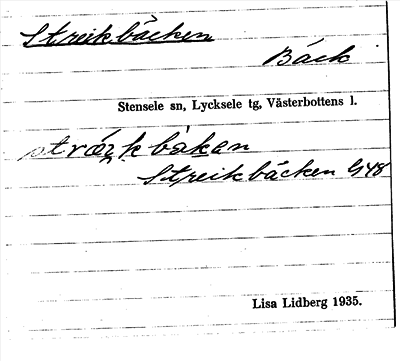 Streikbäcken
Bäck
Stensele sn, Lycksele tg, Västerbottens l.
bäken
Streikbäcken G48
Lisa Lidberg 1935.